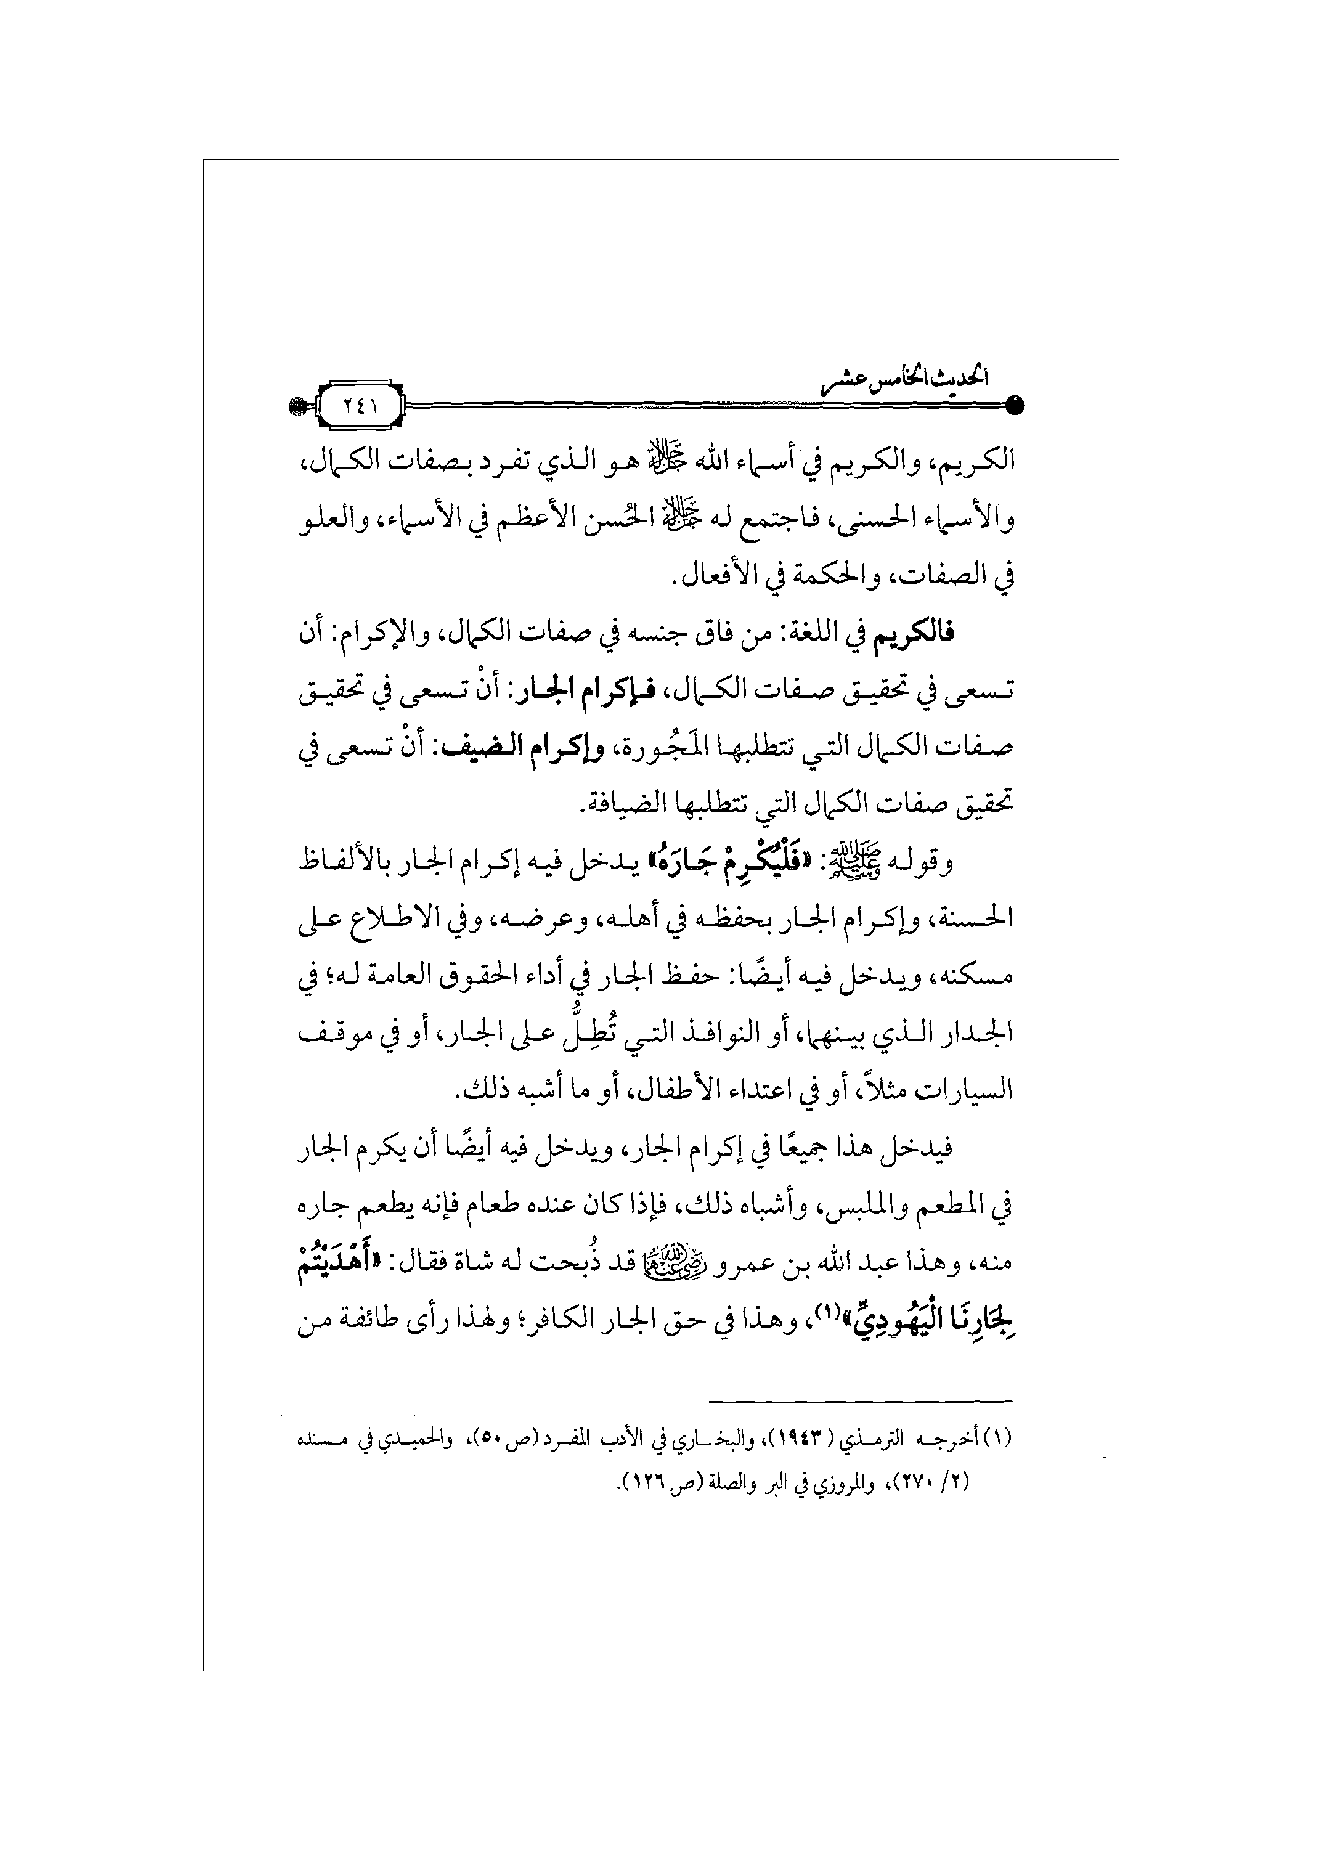 الحديث الخامس عشر
٢٤١
الكريم، والكريم في أسماء الله ﷻ هو الذي تفرد بصفات الكمال،
والأسماء الحسنى، فاجتمع له ﷻ الحُسن الأعظم في الأسماء، والعلو
في الصفات، والحكمة في الأفعال.
فالكريم في اللغة: من فاق جنسه في صفات الكمال، والإكرام: أن
تسعى في تحقيق صفات الكمال، فإكرام الجار: أنْ تسعى في تحقيق
صفات الكمال التي تتطلبها المَجُورة، وإكرام الضيف: أنْ تسعى في
تحقيق صفات الكمال التي تتطلبها الضيافة.
وقوله ﷺ: «فَلْيُكْرِمْ جَارَهُ» يدخل فيه إكرام الجار بالألفاظ
الحسنة، وإكرام الجار بحفظه في أهله، وعرضه، وفي الاطلاع على
مسكنه، ويدخل فيه أيضًا: حفظ الجار في أداء الحقوق العامة له؛ في
الجدار الذي بينهما، أو النوافذ التي تُطِلُّ على الجار، أو في موقف
السيارات مثلاً، أو في اعتداء الأطفال، أو ما أشبه ذلك.
فيدخل هذا جميعًا في إكرام الجار، ويدخل فيه أيضًا أن يكرم الجار
في المطعم والملبس، وأشباه ذلك، فإذا كان عنده طعام فإنه يطعم جاره
منه، وهذا عبد الله بن عمرو رضي الله عنهما قد ذُبحت له شاة فقال: «أَهْدَيْتُمْ
لِجَارِنَا الْيَهُودِيِّ»(١)، وهذا في حق الجار الكافر؛ ولهذا رأى طائفة من
(١) أخرجه الترمذي (١٩٤٣)، والبخاري في الأدب المفرد (ص٥٠)، والحميدي في مسنده
(٢/ ٢٧٠)، والمروزي في البر والصلة (ص١٢٦).